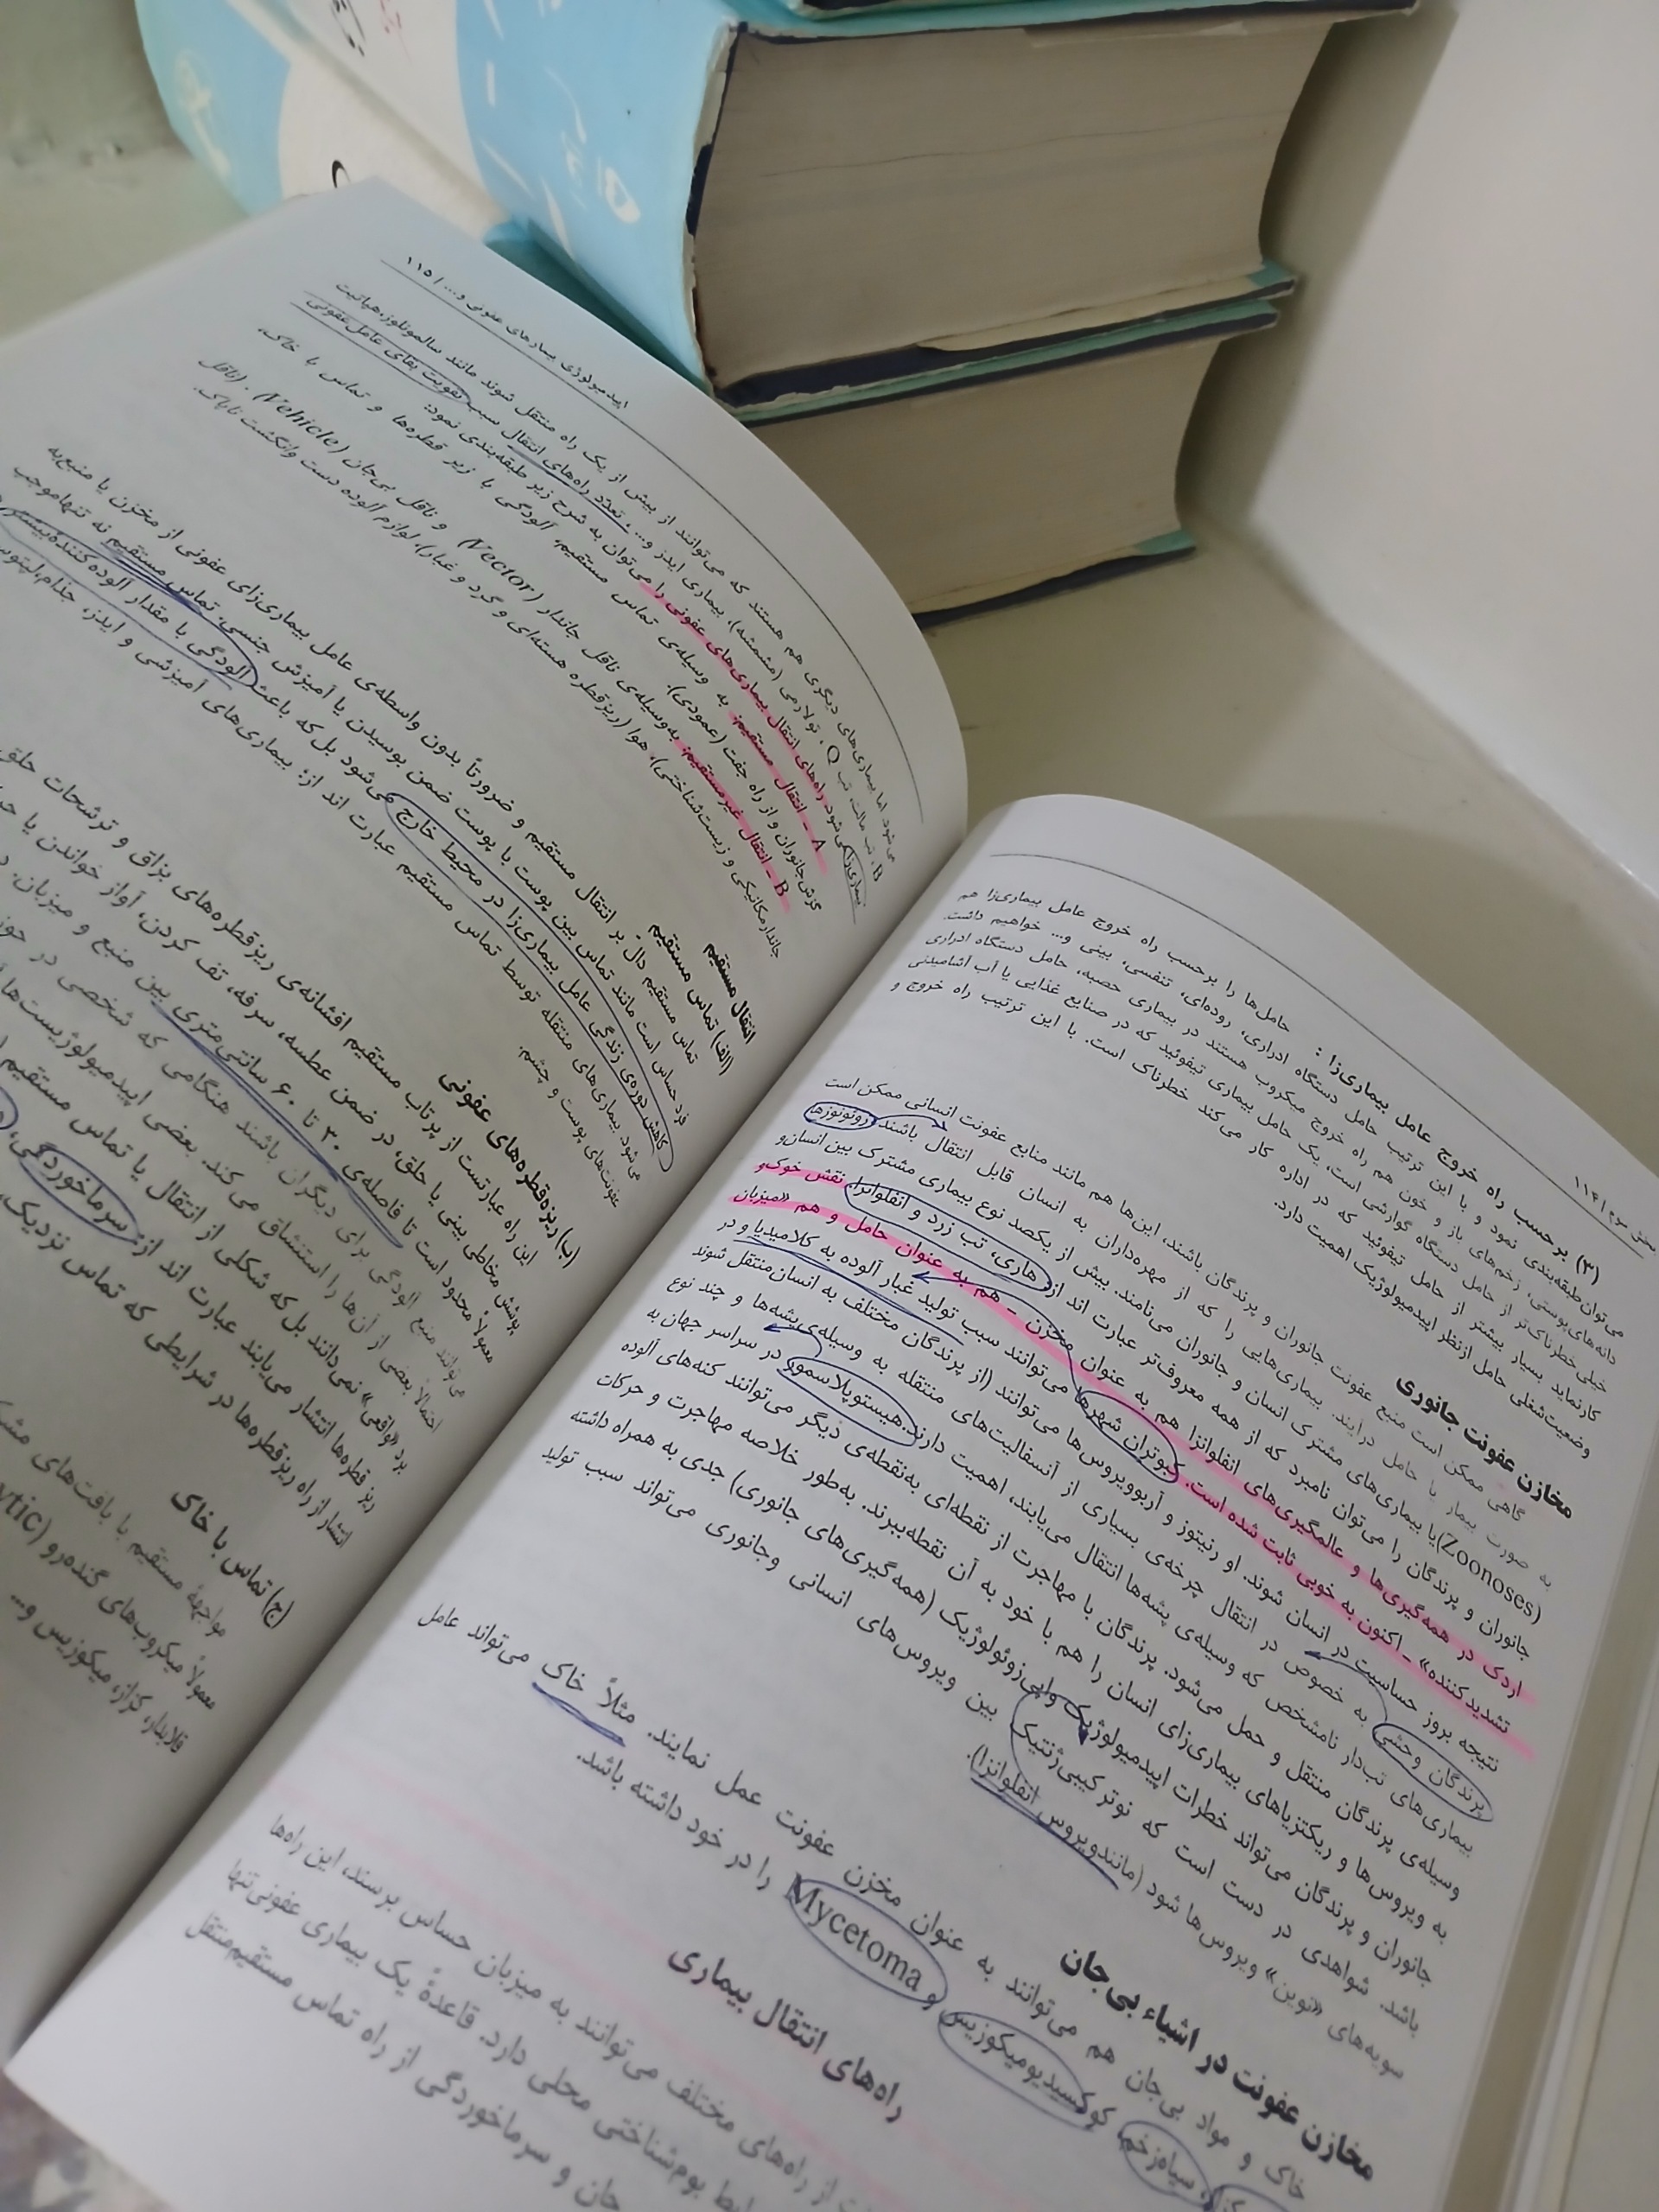 بخش سوم / ۱۱۴
(۳) برحسب راه خروج عامل بیماری‌زا :
حامل‌ها را برحسب راه خروج عامل بیماری‌زا هم
می‌توان طبقه‌بندی نمود و با این ترتیب حامل دستگاه ادراری، روده‌ای، تنفسی، بینی و... خواهیم داشت.
دانه‌های پوستی، زخم‌های باز و خون هم راه خروج میکروب هستند در بیماری حصبه، حامل دستگاه ادراری
خیلی خطرناک‌تر از حامل دستگاه گوارشی است، یک حامل بیماری تیفوئید که در صنایع غذایی یا آب آشامیدنی
کار نماید بسیار بیشتر از حامل تیفوئید که در اداره کار می‌کند خطرناک است. با این ترتیب راه خروج و
وضعیت شغلی حامل از نظر اپیدمیولوژیک اهمیت دارد.
مخازن عفونت جانوری
گاهی ممکن است منبع عفونت جانوران و پرندگان باشند، این‌ها هم مانند منابع عفونت انسانی ممکن است
به صورت بیمار یا حامل درآیند. بیماری‌هایی را که از مهره‌داران به انسان قابل انتقال باشند زئونوزها
(Zoonoses) یا بیماری‌های مشترک انسان و جانوران می‌نامند. بیش از یکصد نوع بیماری مشترک بین انسان و
جانوران و پرندگان را می‌توان نامبرد که از همه معروف‌تر عبارت اند از: هاری، تب زرد و انفلوانزا. نقش خوک و
اردک در همه‌گیری‌ها و عالمگیری‌های انفلوانزا هم به عنوان مخزن - هم به عنوان حامل و هم «میزبان
تشدید کننده» - اکنون به خوبی ثابت شده است. کبوتران شهرها می‌توانند سبب تولید غبار آلوده به کلامیدیا و در
نتیجه بروز حساسیت در انسان شوند. او رنیتوز و آربوویروس‌ها می‌توانند (از پرندگان مختلف به انسان منتقل شوند
پرندگان وحشی به خصوص در انتقال چرخه‌ی بسیاری از آنسفالیت‌های منتقله به وسیله‌ی پشه‌ها و چند نوع
بیماری‌های تب‌دار نامشخص که وسیله‌ی پشه‌ها انتقال می‌یابند، اهمیت دارند. هیستوپلاسموز در سراسر جهان به
وسیله‌ی پرندگان منتقل و حمل می‌شود. پرندگان با مهاجرت از نقطه‌ای به نقطه‌ی دیگر می‌توانند کنه‌های آلوده
به ویروس‌ها و ریکتزیاهای بیماری‌زای انسان را هم با خود به آن نقطه ببرند. به‌طور خلاصه مهاجرت و حرکات
جانوران و پرندگان می‌تواند خطرات اپیدمیولوژیک و اپی‌زوئولوژیک (همه‌گیری‌های جانوری) جدی به همراه داشته
باشد. شواهدی در دست است که نوترکیبی ژنتیک بین ویروس‌های انسانی و جانوری می‌تواند سبب تولید
سویه‌های «نوین» ویروس‌ها شود (مانند ویروس انفلوانزا).
مخازن عفونت در اشیاء بی‌جان
خاک و مواد بی‌جان هم می‌توانند به عنوان مخزن عفونت عمل نمایند. مثلاً خاک می‌تواند عامل
کزاز، سیاه‌زخم، کوکسیدیومیکوزیس و Mycetoma را در خود داشته باشد.
راه‌های انتقال بیماری
از راه‌های مختلف می‌توانند به میزبان حساس برسند، این راه‌ها
بوم‌شناختی محلی دارد. قاعدهٔ یک بیماری عفونی تنها
و سرماخوردگی از راه تماس مستقیم منتقل
اپیدمیولوژی بیماریهای عفونی و.... / ۱۱۵
می‌شود اما بیماری‌های دیگری هم هستند که می‌توانند از بیش از یک راه منتقل شوند مانند سالمونلوز، هپاتیت
B، تب مالت، تب Q، تولارمی (مشمشه)، بیماری ایدز و...، تعدد راه‌های انتقال سبب تقویت بقای عامل عفونی
بیماری‌زا می‌شود. راه‌های انتقال بیماری‌های عفونی را می‌توان به شرح زیر طبقه‌بندی نمود:
A - انتقال مستقیم: به وسیله‌ی تماس مستقیم، آلودگی با ریز قطره‌ها و تماس با خاک،
گزش جانوران و از راه جفت (عمودی).
B - انتقال غیرمستقیم: به‌وسیله‌ی ناقل جاندار (Vector) و ناقل بی‌جان (Vehicle). (ناقل
جاندار مکانیکی و زیست‌شناختی)، هوا (ریزقطره هسته‌ای و گرد و غبار)، لوازم آلوده دست و انگشت ناپاک.
انتقال مستقیم
(الف) تماس مستقیم
تماس مستقیم دال بر انتقال مستقیم و ضرورتاً بدون واسطه‌ی عامل بیماری‌زای عفونی از مخزن یا منبع به
فرد حساس است مانند تماس بین پوست با پوست ضمن بوسیدن یا آمیزش جنسی. تماس مستقیم نه تنها موجب
کاهش دوره‌ی زندگی عامل بیماری‌زا در محیط خارج می‌شود بل که باعث آلودگی با مقدار آلوده کننده بیشتر
می‌شود. بیماری‌های منتقله توسط تماس مستقیم عبارت اند از: بیماری‌های آمیزشی و ایدز، جذام،
عفونت‌های پوست و چشم.
(ب) ریزه‌قطره‌های عفونی
این راه عبارتست از پرتاب مستقیم افشانه‌ی ریزقطره‌های بزاق و ترشحات حلق
پوشش مخاطی بینی یا حلق، در ضمن عطسه، سرفه، تف کردن، آواز خواندن یا
معمولاً محدود است تا فاصله‌ی ۳۰ تا ۶۰ سانتی‌متری بین منبع و میزبان.
می‌توانند منبع آلودگی برای دیگران باشند هنگامی که شخصی در
احتمالاً بعضی از آن‌ها را استنشاق می‌کند. بعضی اپیدمیولوژیست‌ها
برد «واقعی» نمی‌دانند بل که شکلی از انتقال یا تماس مستقیم
ریز قطره‌ها انتشار می‌یابند عبارت اند از: سرماخوردگی،
انتشار از راه ریزقطره‌ها در شرایطی که تماس نزدیک،
(ج) تماس با خاک
مواجههٔ مستقیم با بافت‌های
معمولاً میکروب‌های گنده‌رو
قلابدار، کزاز، میکوزیس و...